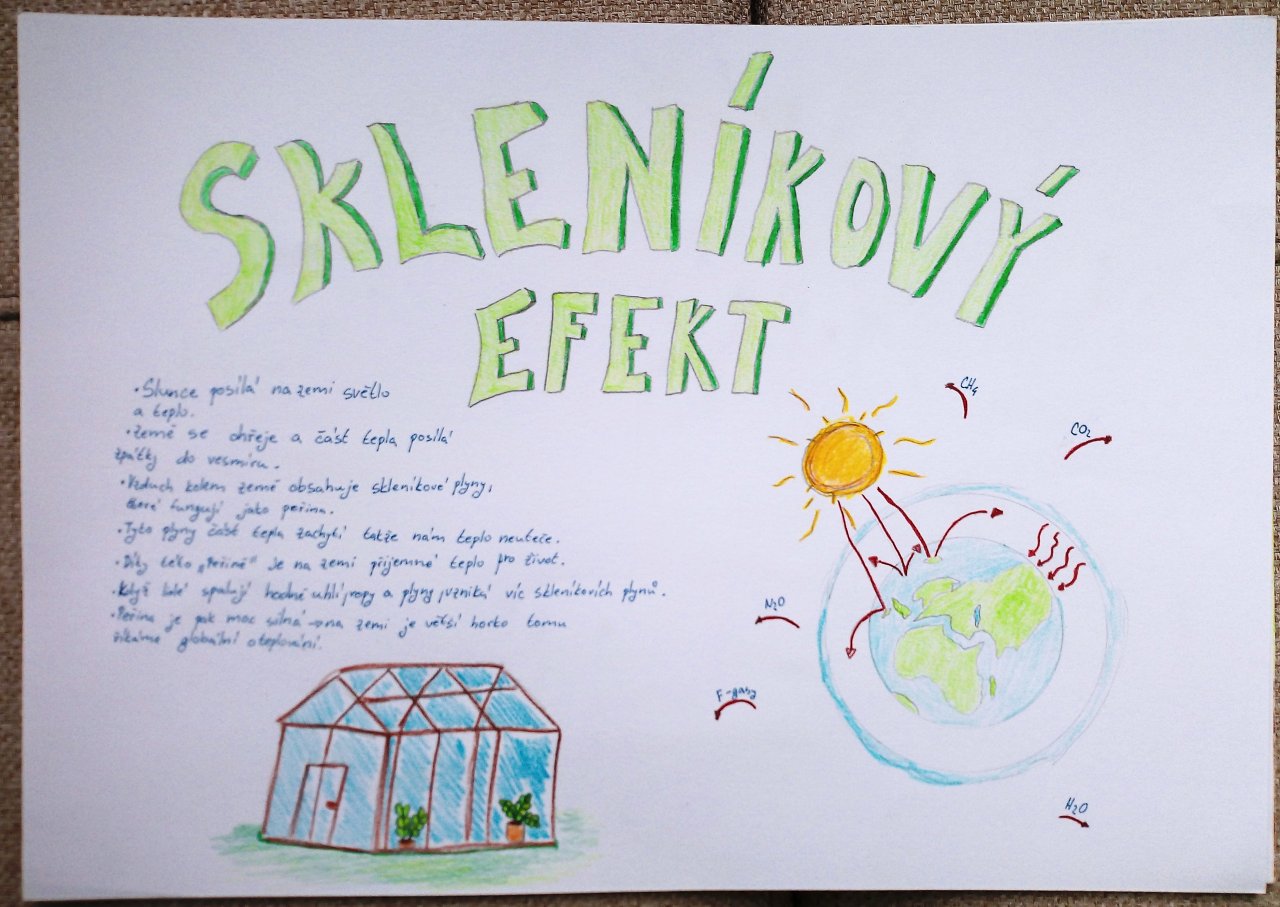 SKLENÍKOVÝ
EFEKT
• Slunce posílá na zemi světlo
a teplo.
• Země se ohřeje a část tepla posílá
zpátky do vesmíru.
• Vzduch kolem země obsahuje skleníkové plyny,
které fungují jako peřina.
• Tyto plyny část tepla zachytí takže nám teplo neuteče.
• Díky této „Peřině" je na zemi příjemné teplo pro život.
• Když lidé spalují hodně uhlí, ropy a plyny, vzniká víc skleníkovích plynů.
• Peřina je pak moc silná → na zemi je větší horko tomu
říkáme globální oteplování.
CH4
CO2
N2O
F-gasy
H2O